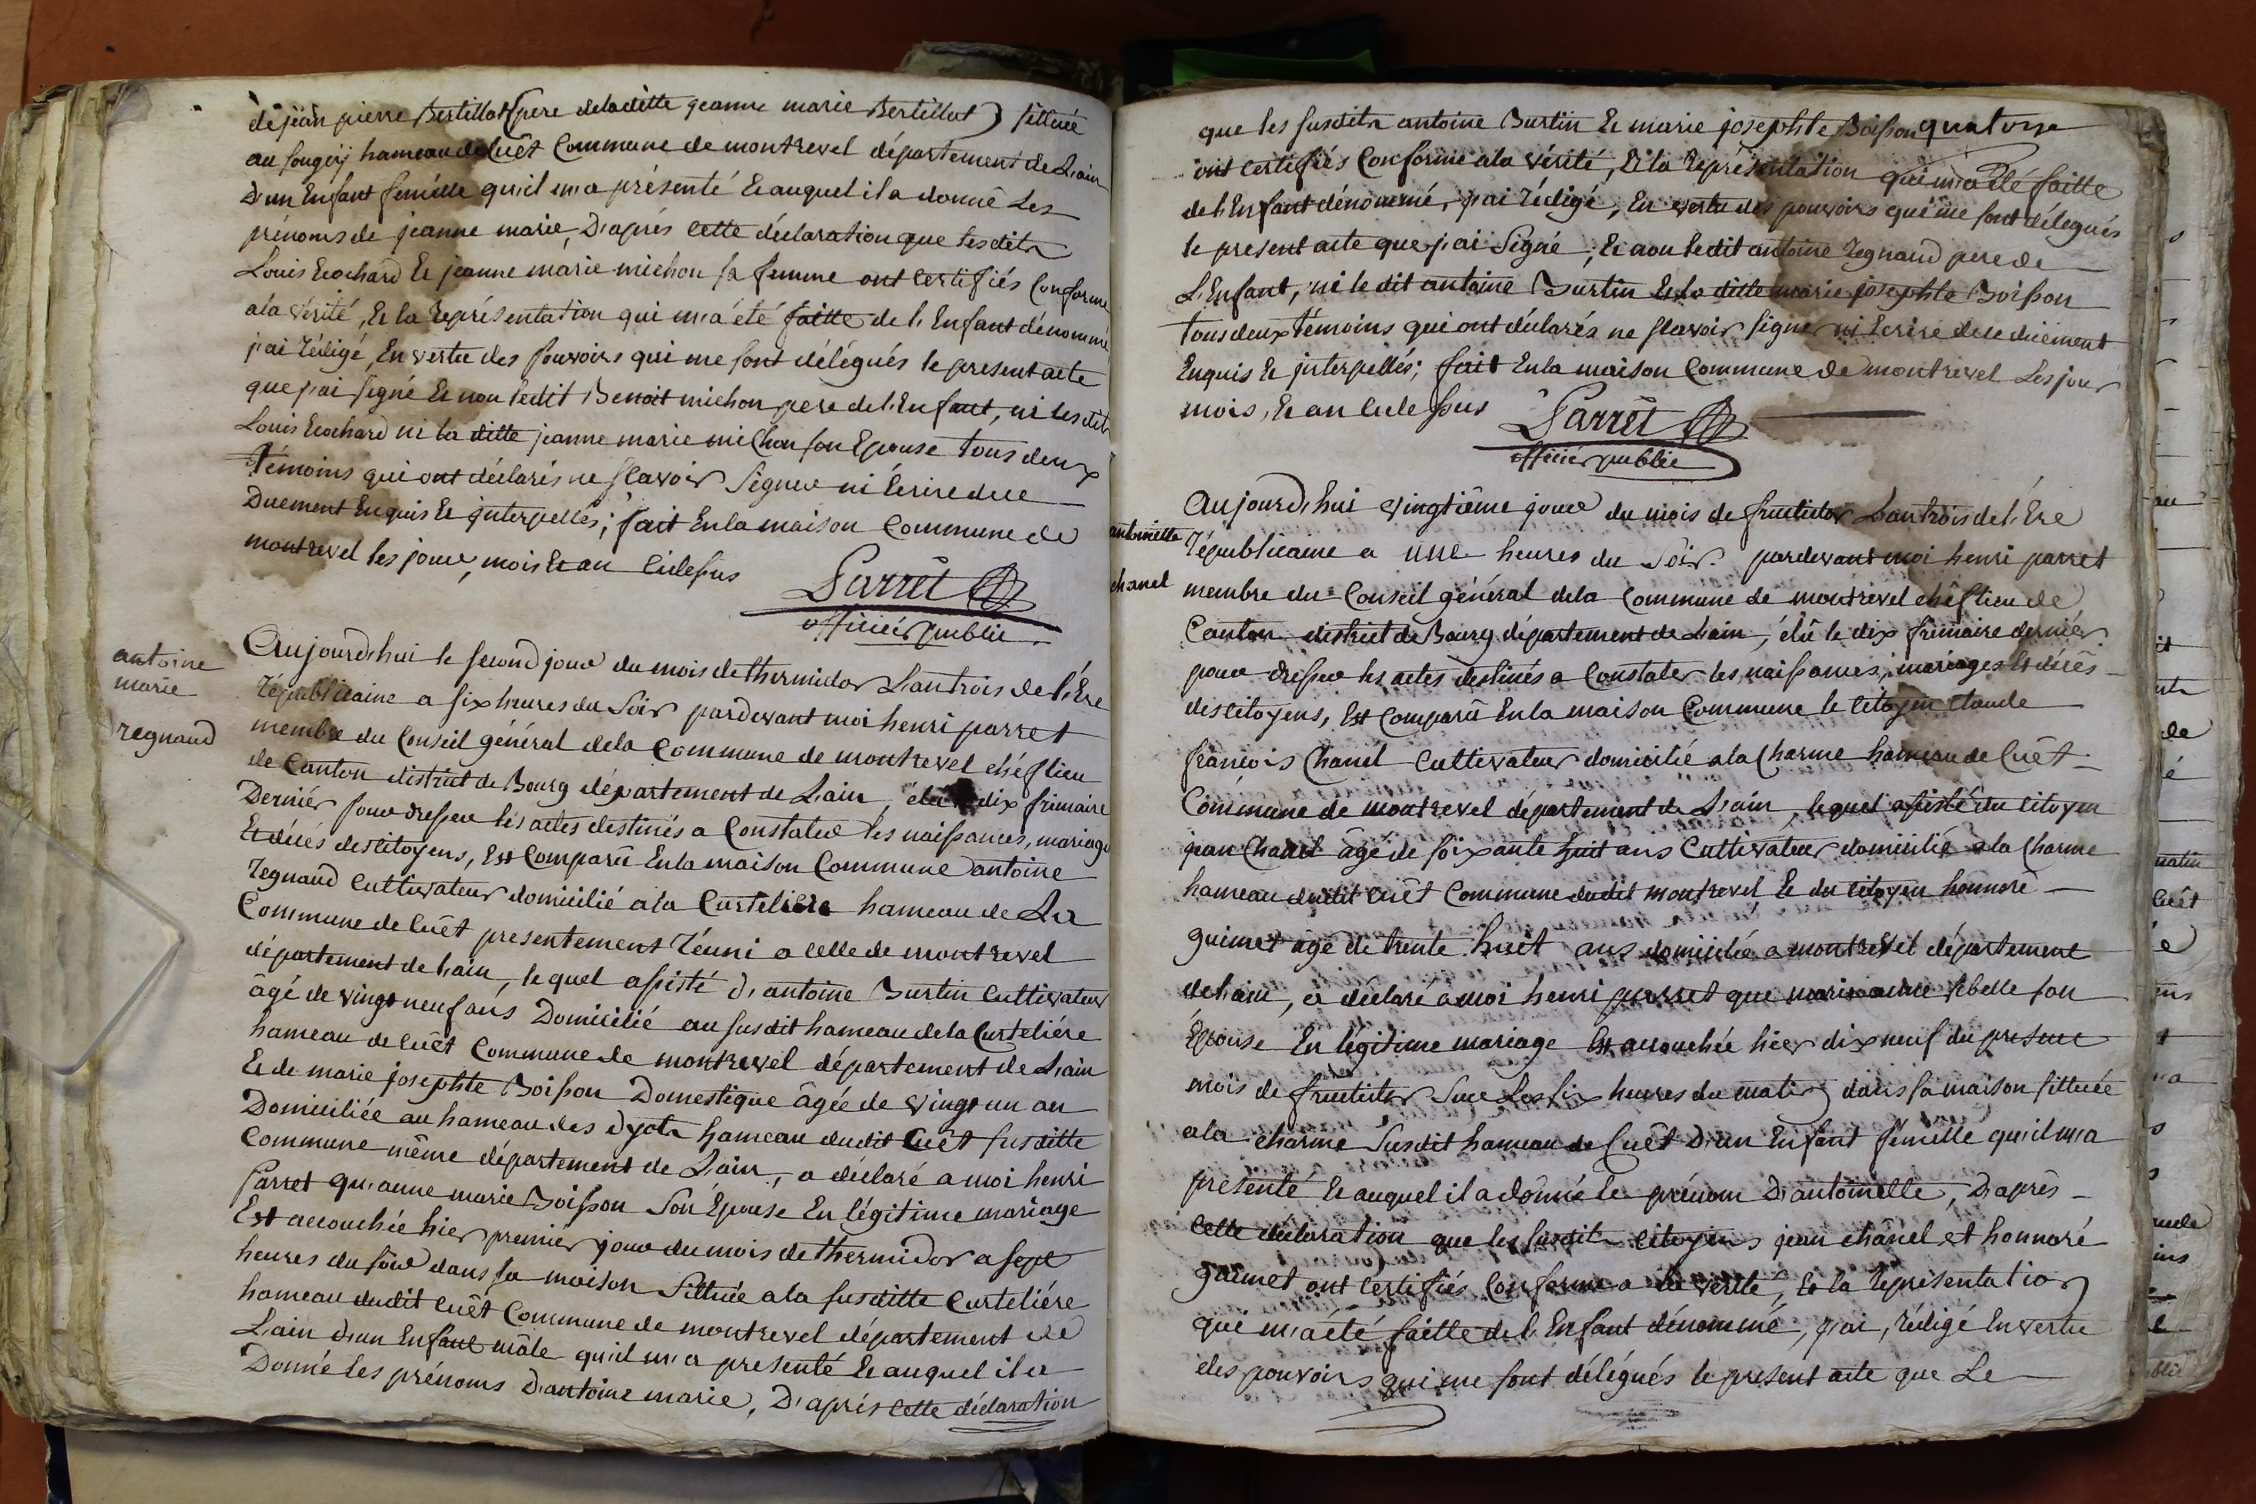 de jean pierre Bertillot (pere de la ditte jeanne marie Bertillut) sittuée
au fougeÿ hameau de Cuêt Commune de montrevel département de L'ain
D'un Enfant femélle qu'il m'a présenté Et auquel il a donnê Les
prénoms de jeanne marie, D'aprés cette déclaration que lesdits
Louis Ecochard Et jeanne marie michon sa femme ont certifiés conforme
a la vérité, Et la Représentation qui m'a été faitte de l'Enfant dénommé
j'ai rédigé, En vertu des pouvoirs qui me sont délégués le present acte
que j'ai signé Et non ledit Benoit michon pere de l'Enfant, ni lesdits
Louis Ecochard ni la ditte jeanne marie michon son Epouse tous deux
témoins qui ont déclarés ne sçavoir signer ni Ecrire de ce
Duement Enquis Et interpellés; fait En la maison Commune de
montrevel les jour, mois Et an cidessus
Parret
officier public
antoine
marie
regnaud
Aujourd'hui le second jour du mois de thermidor L'an trois de l'Ere
républicaine a six heures du Soir pardevant moi henri parret
membre du Conseil général de la Commune de montrevel chéf lieu
de Canton district de Bourg département de L'ain, élu le dix frimaire
Derniér pour dresser les actes destinés a Constater les naissances, mariage
Et décés des citoyens, Est Comparû En la maison Commune antoine
regnaud Cultivateur domicilié a la Curteliére hameau de La
Commune de Cuêt presentement réuni a celle de montrevel
département de L'ain, lequel assisté d'antoine Burtin Cultivateur
âgé de vingt neuf ans Domicilié au susdit hameau de la Curteliére
hameau de Cuêt Commune de montrevel département de L'ain
Et de marie josephte Boisson Domestique âgée de vingt un an
Domiciliée au hameau des dyots hameau dudit Cuêt susditte
Commune même département de L'ain, a déclaré a moi henri
Parret qu'anne marie Boisson Son Epouse En légitime mariage
Est accouchée hier premiér jour du mois de thermidor a sept
heures du soir dans sa maison Sittuée a la susditte Curteliére
hameau dudit Cuêt Commune de montrevel département de
L'ain d'un Enfant mâle qu'il m'a presenté Et auquel il a
Donné les prénoms D'antoine marie, D'aprés cette déclaration
que les susdits antoine Burtin Et marie josephte Boisson quatorze
ont certifiés Conforme a la vérité, Et la Représentation qui m'a été faitte
de l'Enfant dénommé, j'ai rédigé, En vertu des pouvoirs qui me sont délegués
le present acte que j'ai Signé, Et non ledit antoine regnaud pere de
L'Enfant, ni le dit antoine Burtin Et la ditte marie josephte Boisson
tous deux témoins qui ont déclarés ne sçavoir signer ni Ecrire de ce duement
Enquis Et interpellés; fait En la maison Commune de montrevel Les jour
mois, Et an cidessus
Parret
officier public
antoinette
chanel
Aujourd'hui vingtiême jour du mois de fructidor L'an trois de l'Ere
républicaine a une heures du Soir pardevant moi henri parret
membre du Conseil général de la Commune de montrevel chéf lieu de
Canton district de Bourg département de L'ain, élû le dix frimaire derniér
pour dresser les actes destinés a Constater les naissances, mariages Et décês
des citoyens, Est Comparû En la maison Commune le Citoyen Claude
françois Chanel Cultivateur domicilié a la Charme hameau de Cuêt
Commune de montrevel département de L'ain, lequel assisté du citoyen
jean Chanel âgé de soixante huit ans Cultivateur domicilié a la Charme
hameau dudit Cuêt Commune dudit montrevel Et du citoyen honnoré
guimet agé de trente huit ans domicilié a montrevel département
de L'ain, a déclaré a moi henri parret que marie anne sibelle son
Épouse En légitime mariage Est accouchée hier dix neuf du present
mois de fructidor Sur Les six heures du matin dans sa maison sittuée
a la charme Susdit hameau de Cuêt D'un Enfant fémelle qu'il m'a
présenté Et auquel il a donné le prénom D'antoinette, D'aprés
cette déclaration que les susdits citoyens jean chânel et honnoré
guimet ont certifiés conforme a la vérité, Et la représentation
qui m'a été faitte de l'Enfant dénommé, j'ai, rédigé En vertu
des pouvoirs qui me sont délégués le present acte que Le